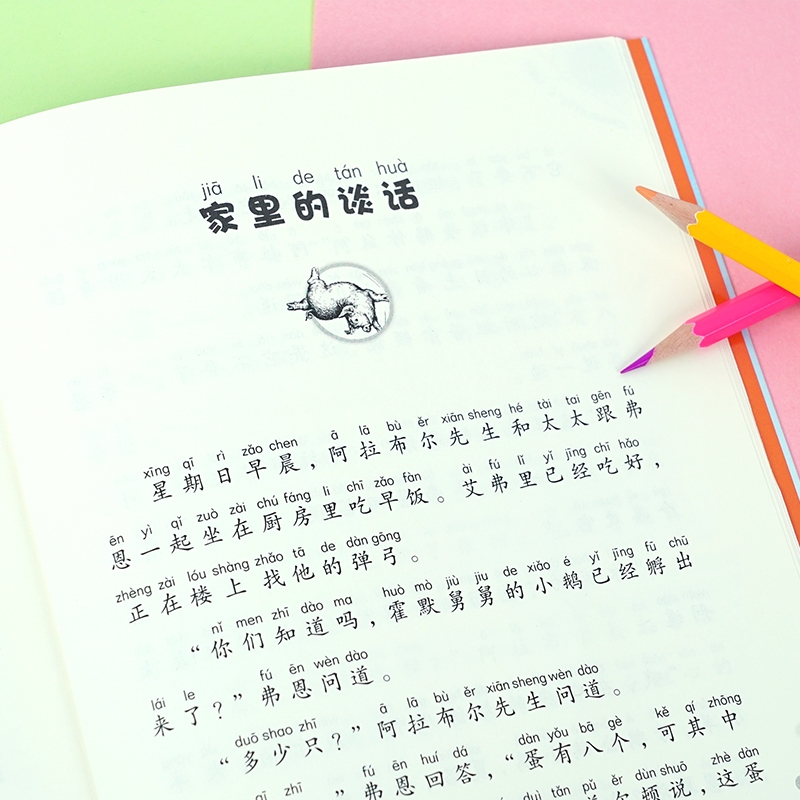 jiā li de tán huà
家里的谈话
xīng qī rì zǎo chen ā lā bù ěr xiān sheng hé tài tai gēn fú
星期日早晨，阿拉布尔先生和太太跟弗
ēn yì qǐ zuò zài chú fáng li chī zǎo fàn ài fú lǐ yǐ jīng chī hǎo
恩一起坐在厨房里吃早饭。艾弗里已经吃好，
zhèng zài lóu shàng zhǎo tā de dàn gōng
正在楼上找他的弹弓。
nǐ men zhī dào ma huò mò jiù jiu de xiǎo é yǐ jīng fū chū
“你们知道吗，霍默舅舅的小鹅已经孵出
lái le fú ēn wèn dào
来了？”弗恩问道。
duō shao zhī ā lā bù ěr xiān sheng wèn dào
“多少只？”阿拉布尔先生问道。
fú ēn huí dá dàn yǒu bā gè kě qí zhōng
”弗恩回答，“蛋有八个，可其中
tǎn pǔ ěr dùn shuō zhè dàn
尔顿说，这蛋